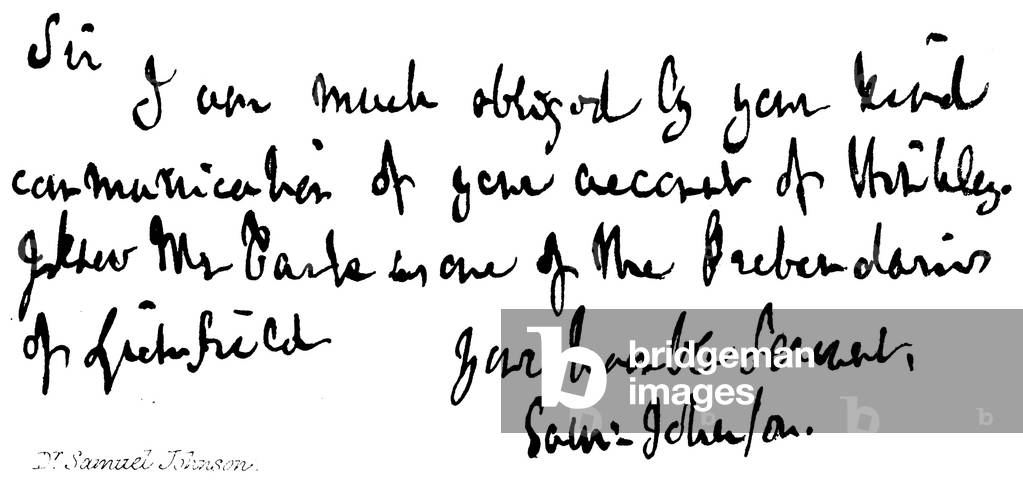 Sir
I am much obliged by your kind
communication of your account of Hinkley.
I knew Mr as one of the Prebendaries
of Lichfield
Your humble Servant,
Sam: Johnson.
bridgeman
images
Dr Samuel Johnson.